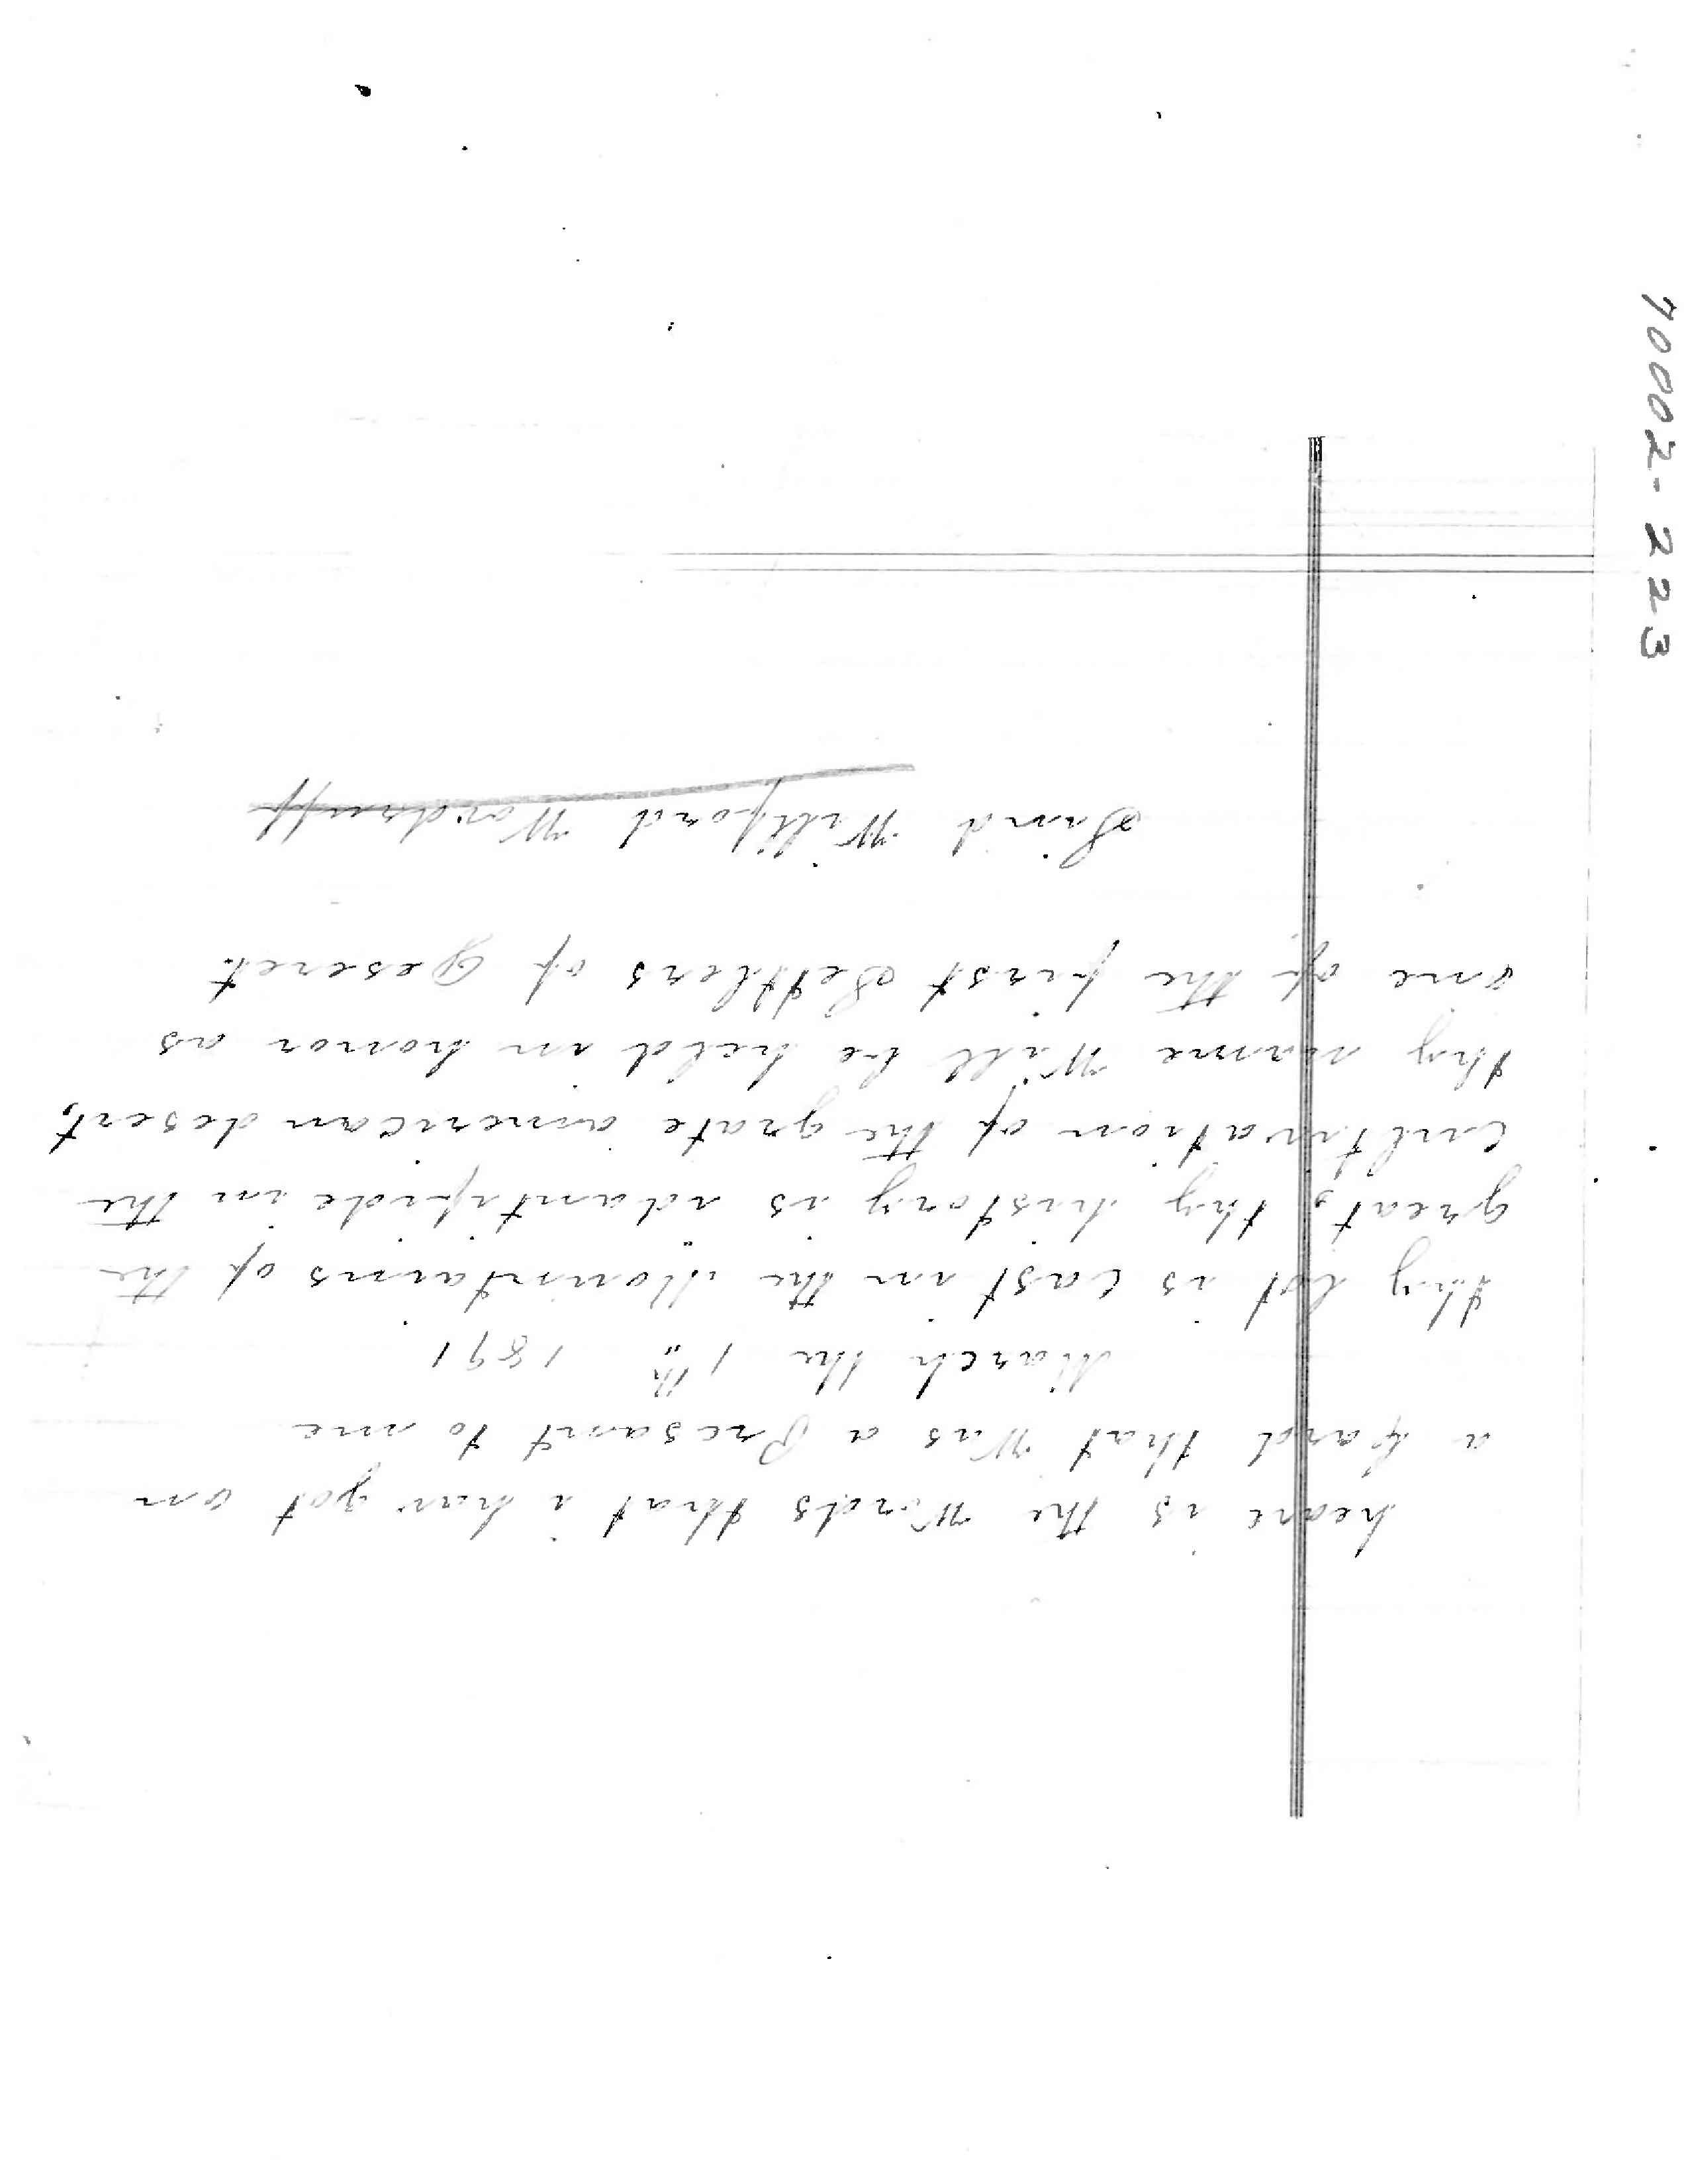 heare is the Words that i hav got on
a kard that Was a Presant to me
March the 1th 1891
thy lot is cast in the Mountains of the
great, thy history is idantifide in the
Cultivation of the grate american desert,
thy name Will be held in honor as
one of the first Settlers of Deseret.
Sind Willford Wordruff
70002-223